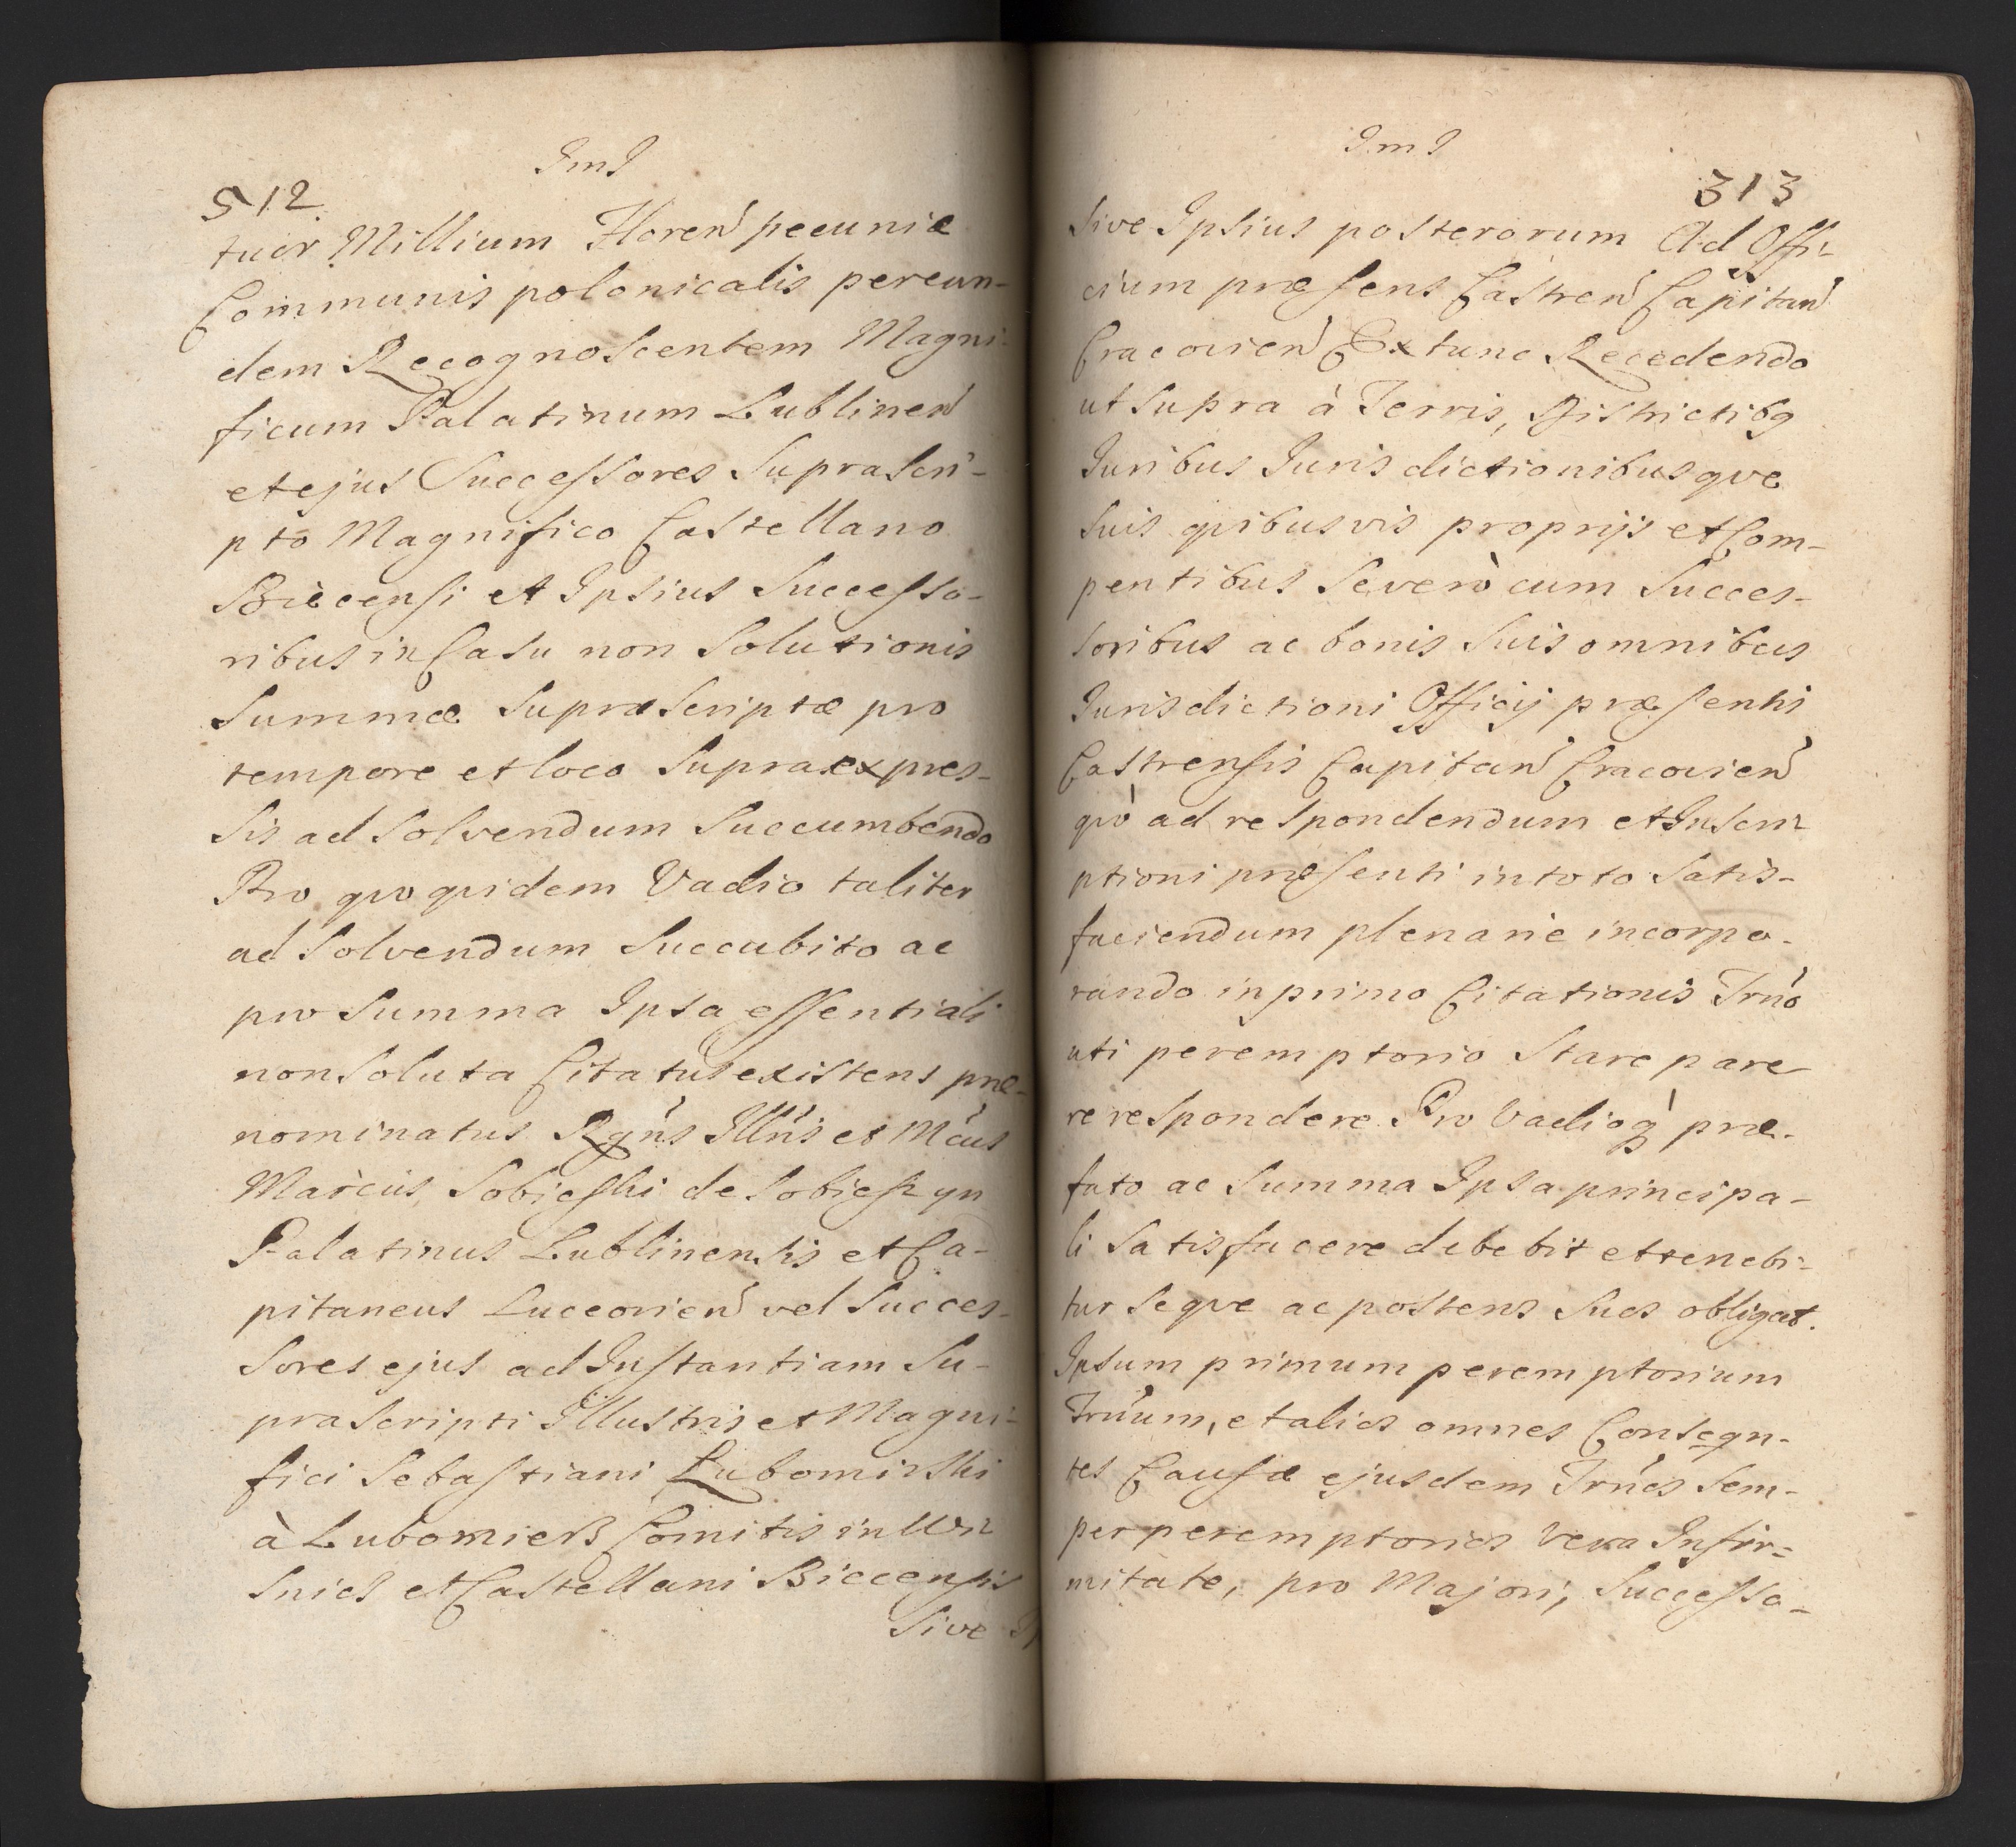 JmJ
512
tuor Millium Floren pecuniæ
Communis polonicalis pereun-
dem Recognoscentem Magni-
ficum Palatinum Lublinen
et ejus Successores Suprascri-
pto Magnifico Castellano
Biècensi et Ipsius Successo-
ribus in Casu non Solutionis
Summæ Suprascriptæ pro
tempore et loco Supraexpres-
sis ad Solvendum Succumbendo
Pro quo quidem Vadio taliter
ad Solvendum Succubito ac
pro Summa Ipsa essentiali
non Soluta Citatus existens præ-
nominatus Rgńs Illńs et Mćus
Marcus Sobieski de Sobieszyn
Palatinus Lublinensis et Ca-
pitaneus Luceorien vel Succes-
sores ejus ad Instantiam Su-
prascripti Illustris et Magni-
fici Sebastiani Lubomirski
à Lubomierz Comitis in Wi
snicz et Castellani Biecensis
Sive
JmJ
313
Sive Ipsius posterorum Ad Offi-
cium præsens Castren Capitan
Cracovien Extunc Recedendo
ut supra à Terris, Districtibq
Juribus Jurisdictionibusque
suis quibusvis proprijs et Com-
pentibus Severò cum Succes-
soribus ac bonis suis omnibus
Jurisdictioni Officij præsentis
Castrensis Capitan Cracovien
quò ad respondendum et Inscri
ptioni præsenti in toto satis-
faciendum plenarie incorpo-
rando in primo Citationis Trńo
uti peremptorio Stare pare
re respondere Pro Vadioq præ-
fato ac Summa Ipsa principa-
li Satisfacere debebit et tenebi-
tur Seque ac posteros suos obligat.
Ipsum primum peremptorium
Trńum, et alios omnes Conseqn-
tes Causæ ejusdem Trńos sem-
per peremptorios Vera Infir-
mitate, pro Majori, Successo-